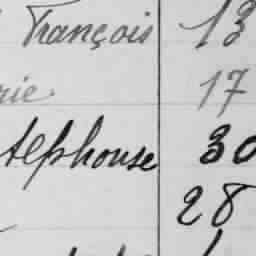 François 13
rie 17
Alphonse 30
28